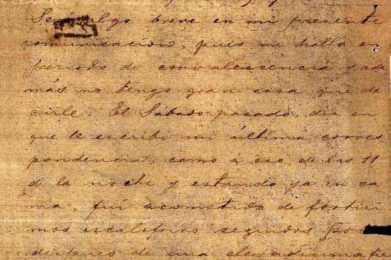 Seré algo breve en mi presente
comunicacion, pues me hallo en
periodo de convalescencia y ad
más no tengo gran cosa que de
cirle. El Sabado pasado, dia en
que le escribi mi última corres
pondencia, como á eso de las 11
de la noche y estando ya en ca
ma, fuí acometido de fortísi
mos escalofrios seguidos
despues de una